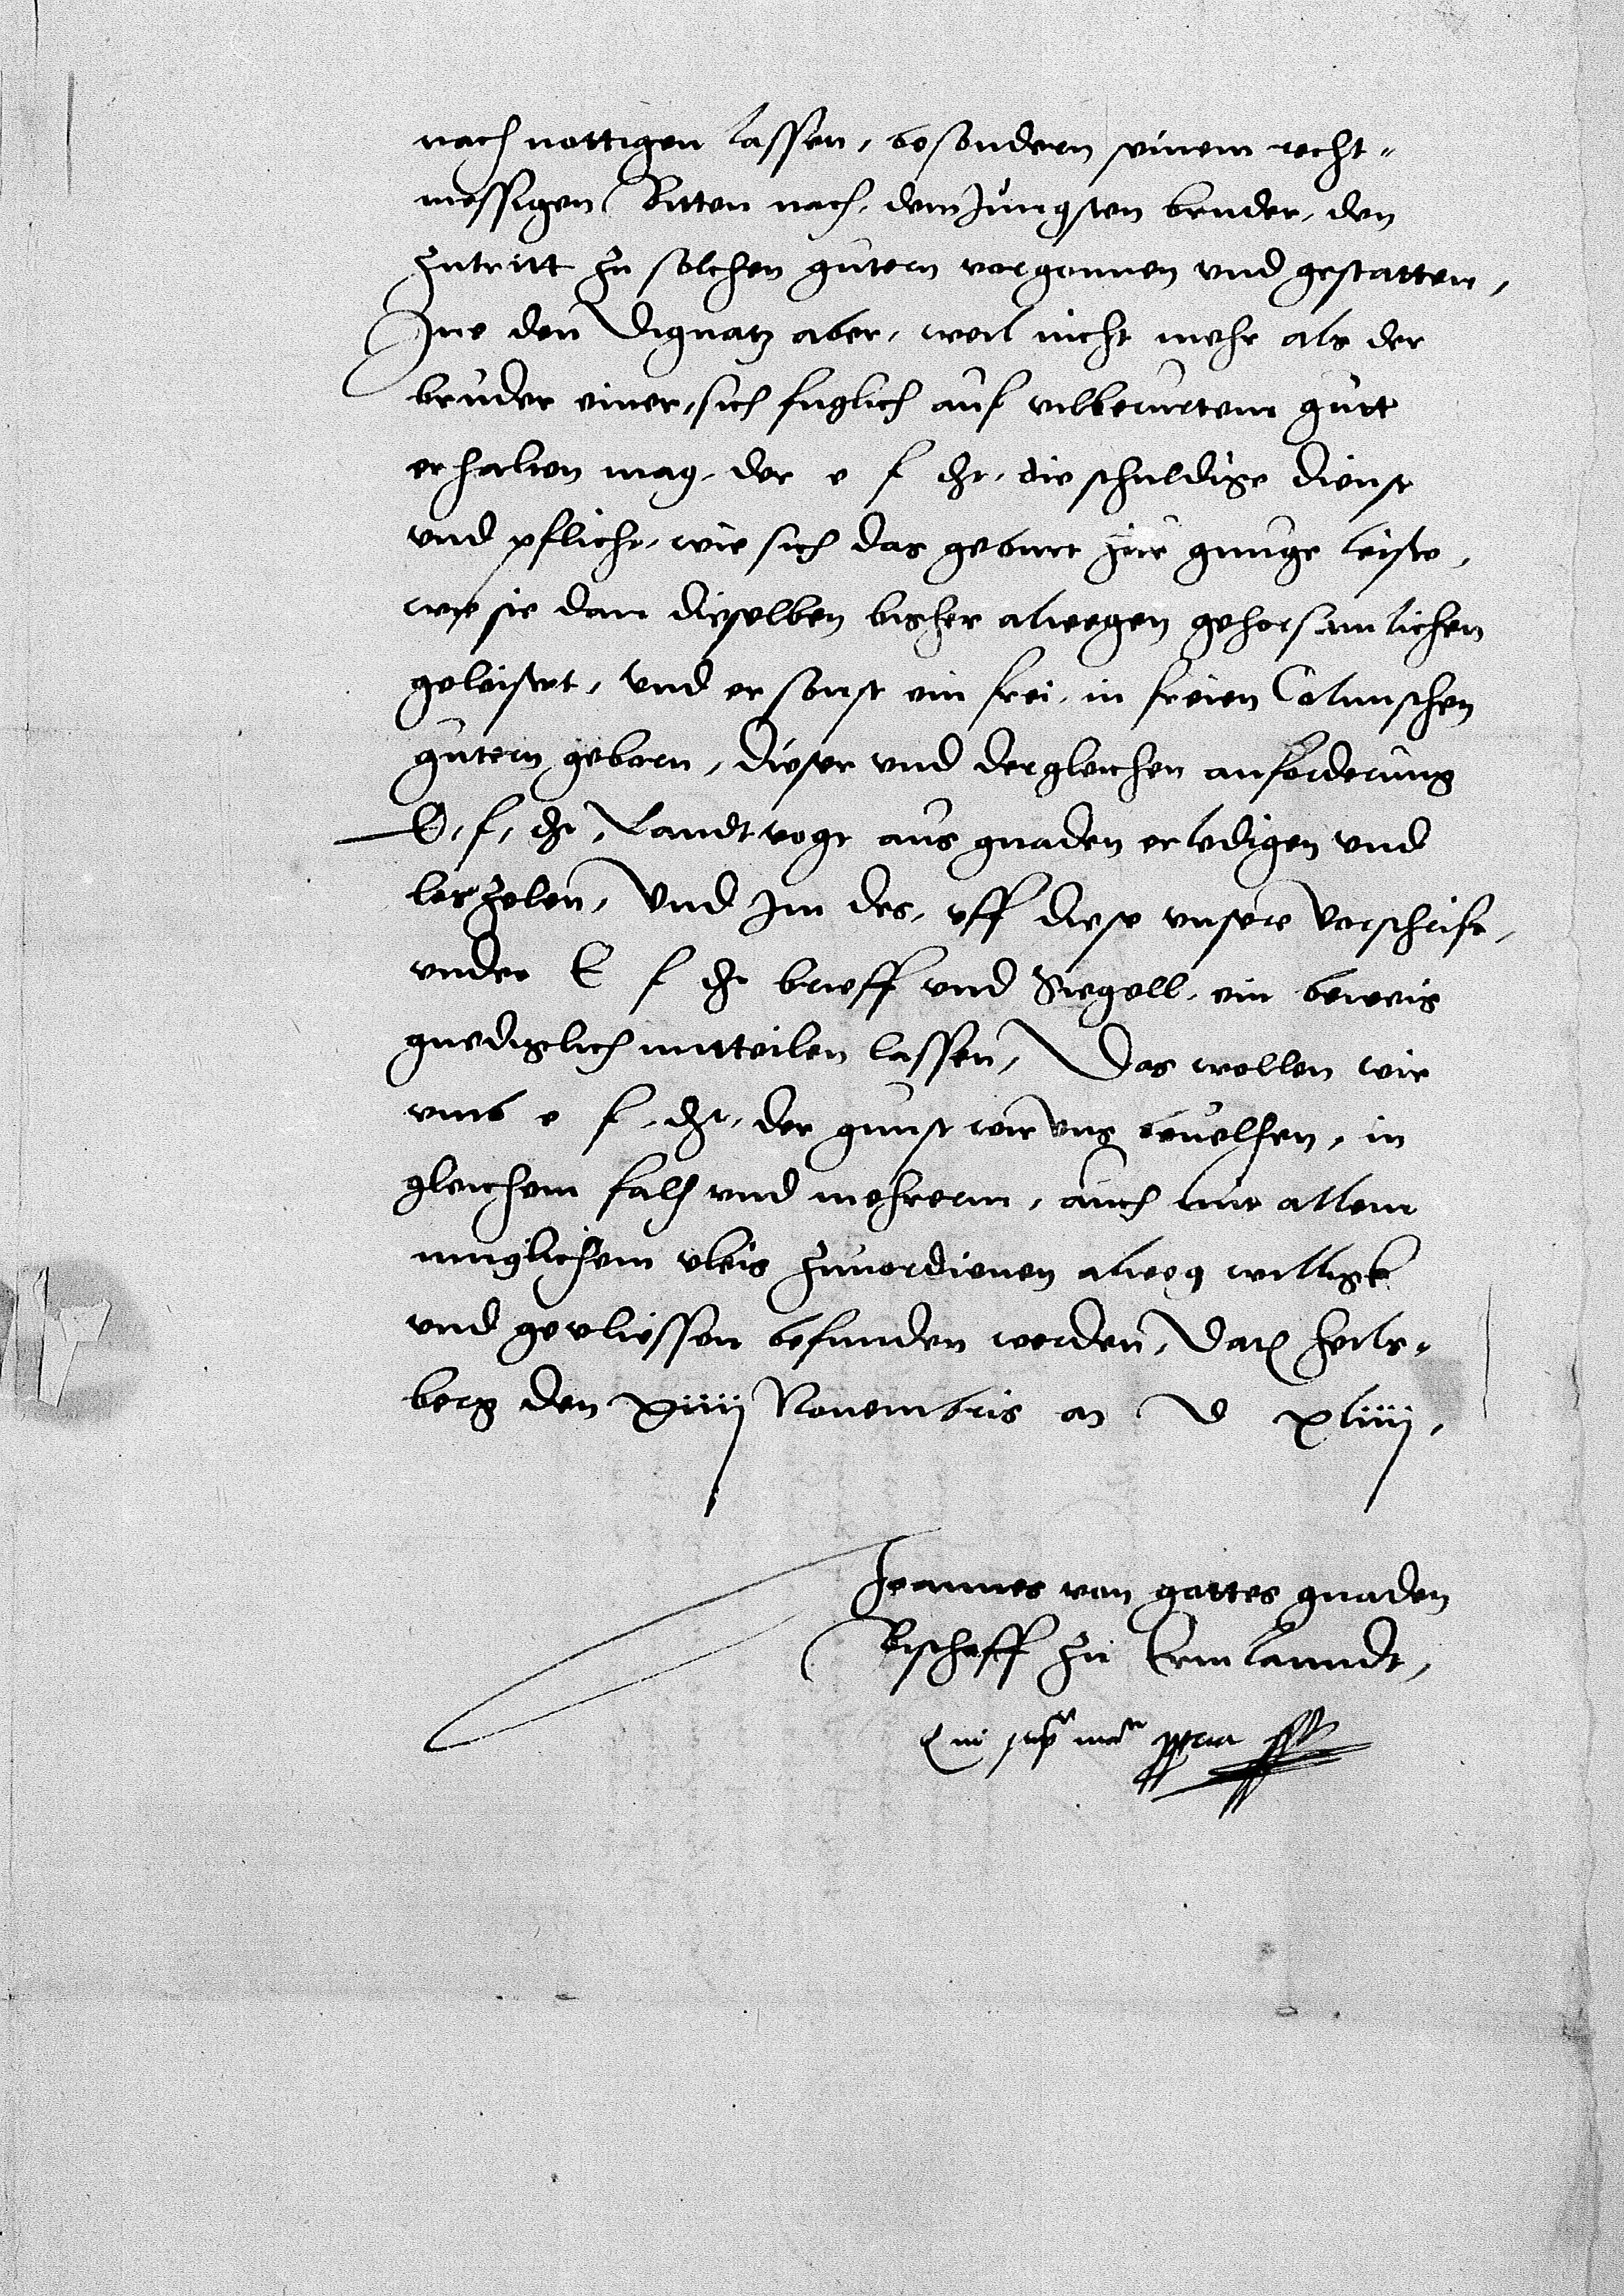 nach nottigen lassen, besondern seinem recht-
messigen Bitten nach, dem Jungsten bruder, den
Zutritt zu solchen gutern vorgonnen vnd gestatten,
Ine den Dignatz aber, weil nicht mehr als der
bruder einer, sich fuglich auf vilberurtem gutt
erhalten mag, der e f dt, die schuldige dienst
vnd pflicht, wie sich das geburt zur gnuge leiste,
wie sie dan dieselben bisher alwegen gehorsamlichen
geleistet, vnd er sonst ein frei, in freien Colmischen
gutern geborn, dieser vnd dergleichen anforderung
E, f, dt, Landtvogt aus gnaden erledigen vnd
loszelen, Vnd Im des, vff diese vnsere Vorschrift,
vnder E f dt brieff vnd Siegell, ein beweis
gnediglich mitteilen lassen, Das wollen wir
vmb e f, dt, der gunst wir vns beuelhen, in
gleichem fall vnd mehrerm, auch mit allem
muglichem vleis zuuordienen alweg willigk
vnd geuliessen befunden werden, Dat Heils-
berg den xiiij Nouembris an D xliiij,
Joannes von gottes gnaden
Bischoff zu Ermlanndt,